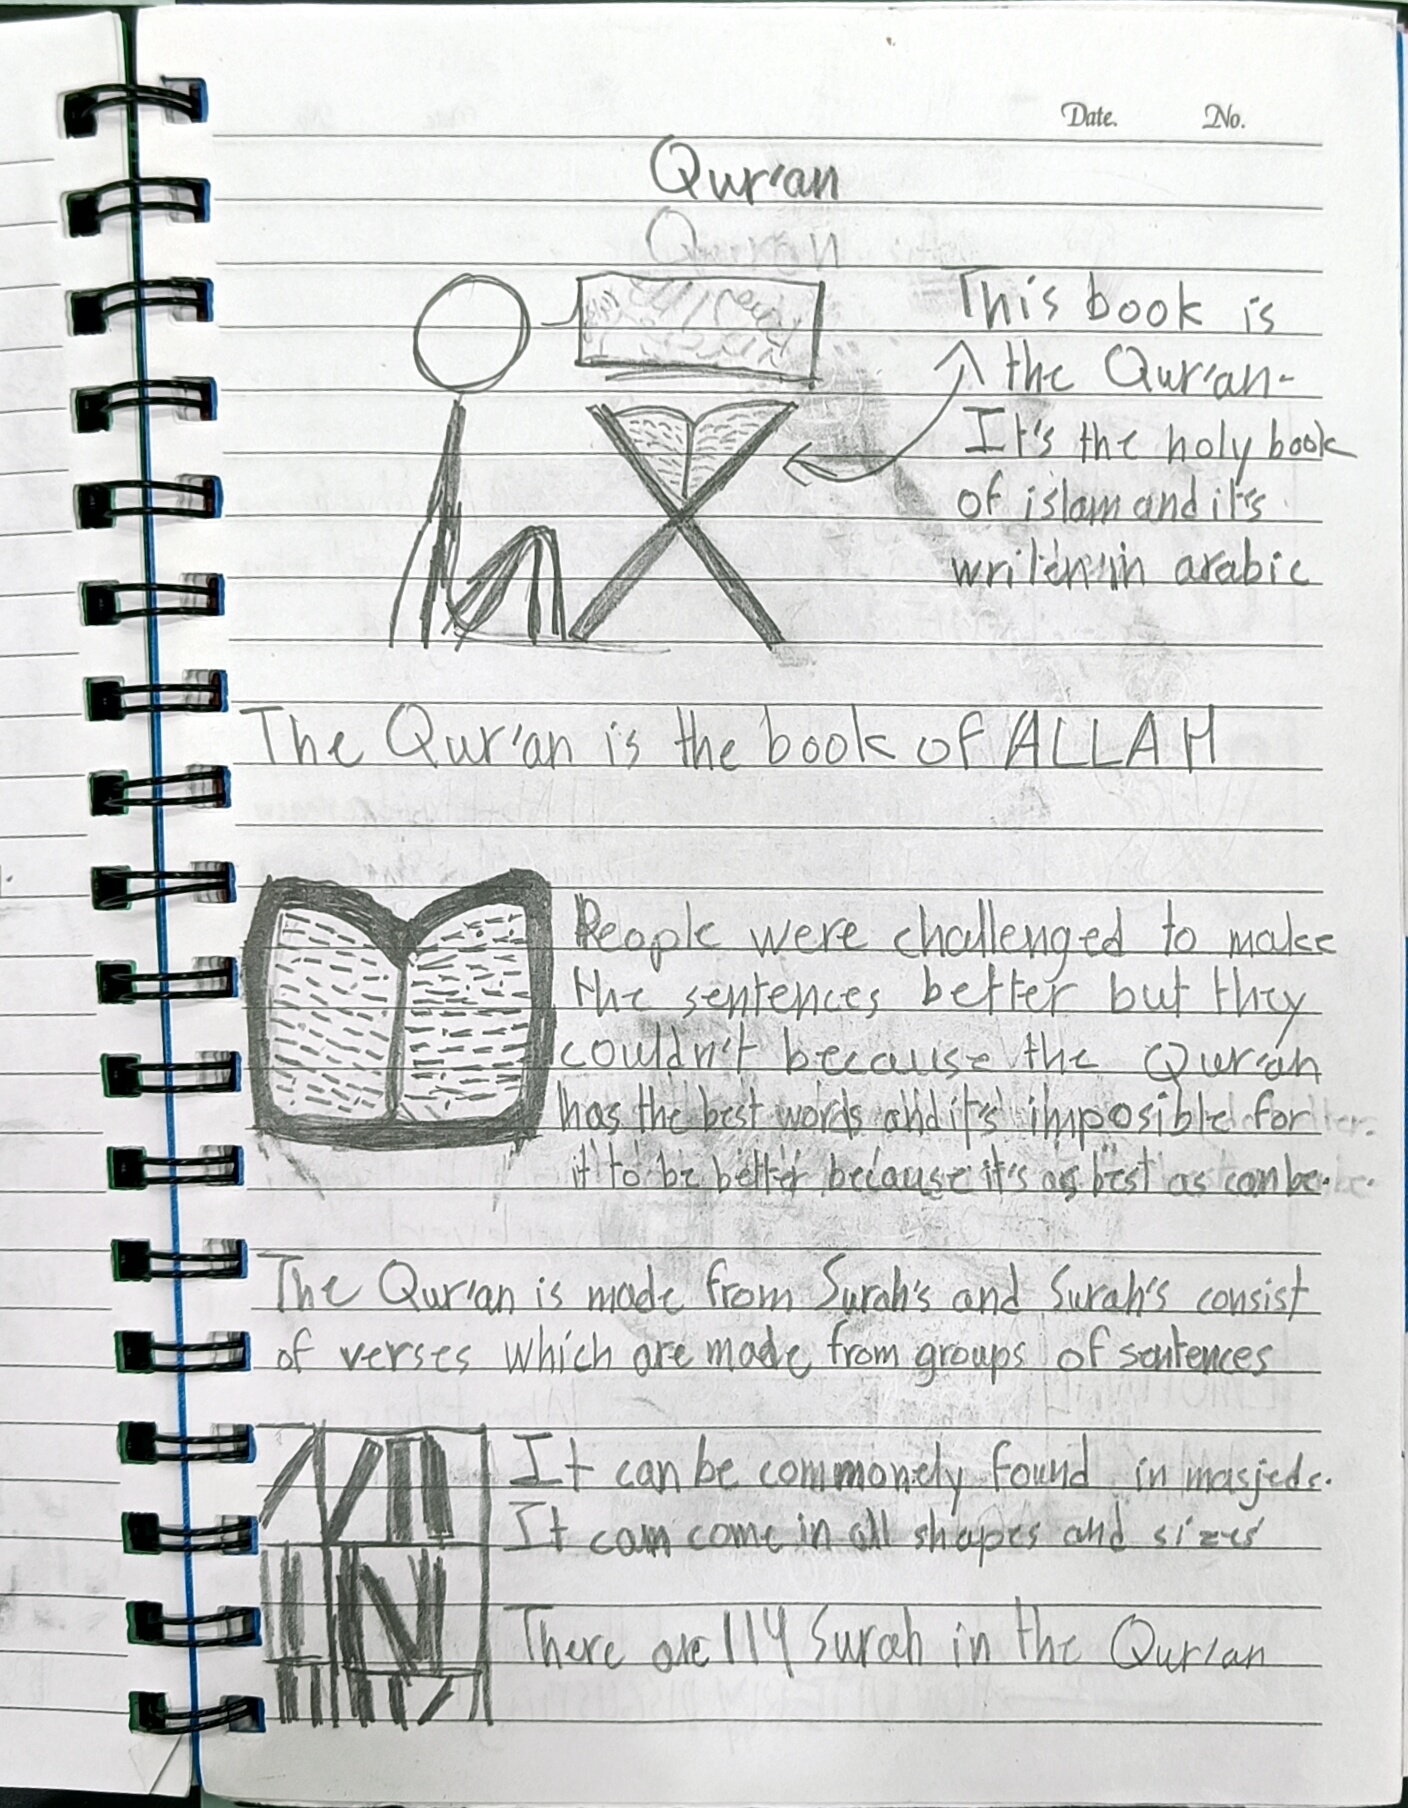 Date. No.
Qur'an
This book is
the Qur'an-
It's the holy book
of islam and it's
in arabic
The Qur'an is the book of ALLAH
People were challenged to make
the sentences better but they
couldn't because the Qur'an
has the best words and it's imposible for
it to be better because it's as best as can be.
The Qur'an is made from Surah's and Surah's consist
of verses which are made from groups of sentences
It can be commonely found in masjeds.
It can come in all shapes and sizes
There are 114 Surah in the Qur'an